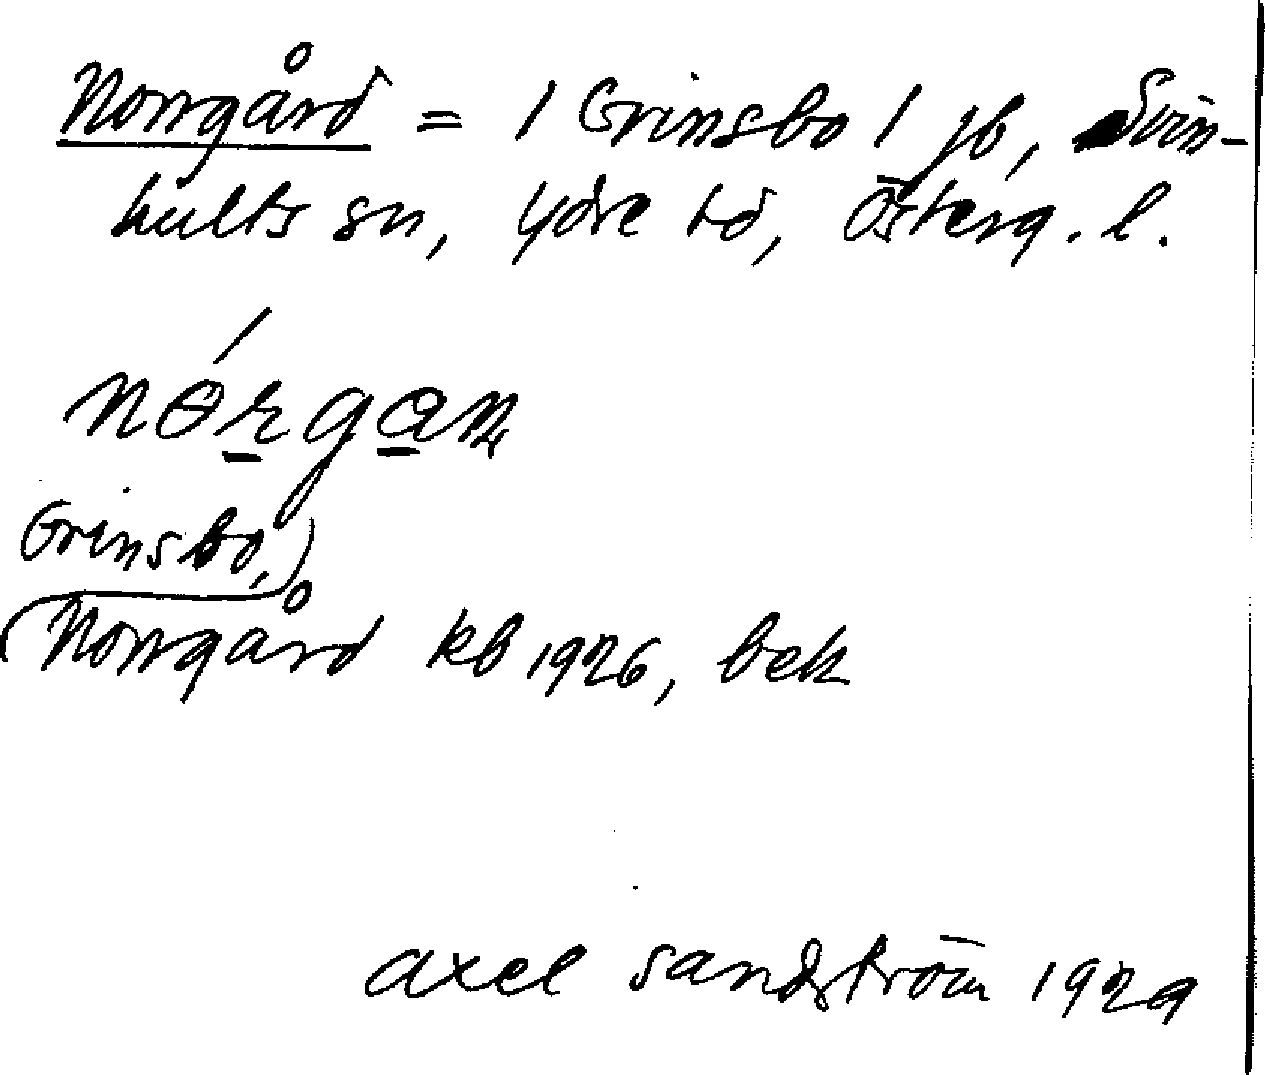 Norrgård = 1 Grinsbo 1 jb, Svin-
hults sn, Ydre hd, Österg. l.
nǿrgan
Grinsbo,
Norrgård kb 1926, bek
axel sandström 1929